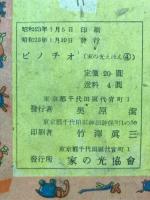 昭和23年1月5日 印刷
昭和23年1月10日 発行
ピノチオ (家の光えほん④)
定價 20圓
送料 4圓
東京都千代田區代官町1
發行者 奥原潔
東京都千代田區
印刷者 竹澤眞三
東京都千代田區代官町1
發行所 家の光協會